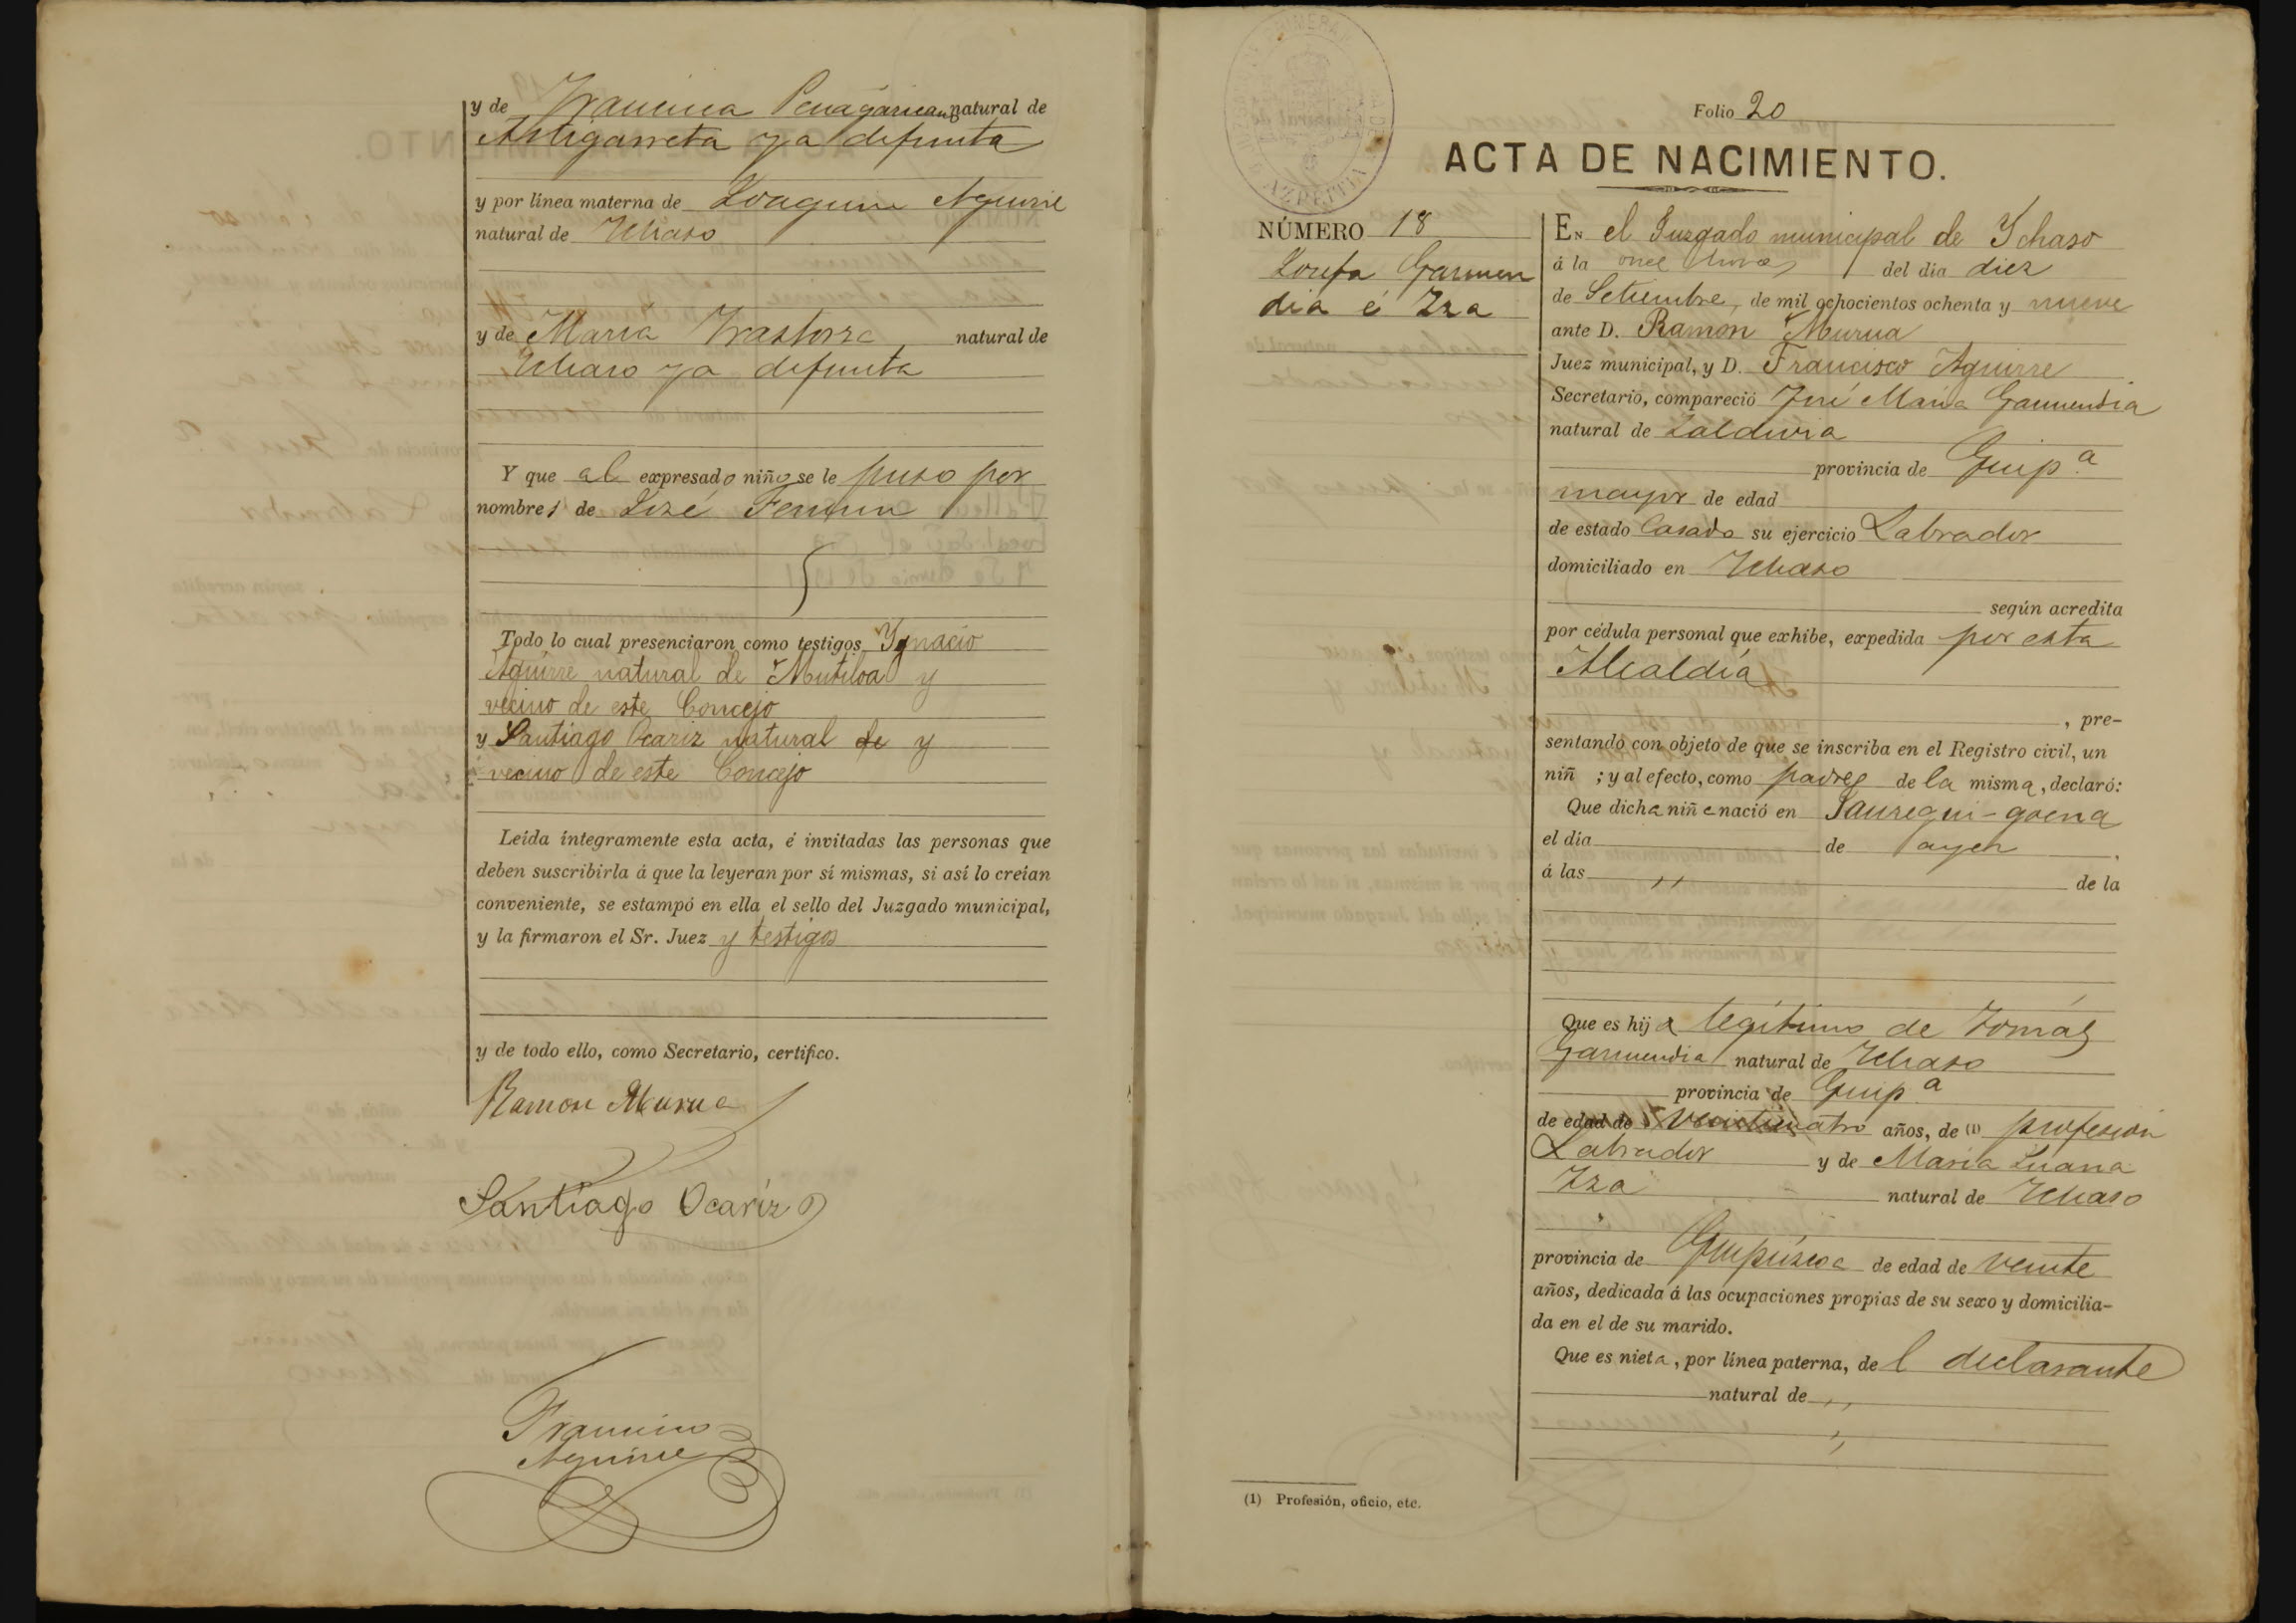 y de Francisca Penagaricano natural de
Astigarreta ya difunta
y por línea materna de Joaquin Aguirre
natural de Ichaso
y de Maria Irastorza natural de
Ichaso ya difunta
Y que al expresado niño se le puso por
nombres de José Fermin
Todo lo cual presenciaron como testigos Ygnacio
Aguirre natural de Mutiloa y
vecino de este Concejo
y Santiago Ocariz natural de y
vecino de este Concejo
Leída íntegramente esta acta, é invitadas las personas que
deben suscribirla á que la leyeran por sí mismas, si así lo creían
conveniente, se estampó en ella el sello del Juzgado municipal,
y la firmaron el Sr. Juez y testigos
y de todo ello, como Secretario, certifico.
Ramon Murua
Santiago Ocariz
Francisco
Aguirre
AZPEITIA
Folio 20
ACTA DE NACIMIENTO.
NÚMERO 18
Josefa Garmen
dia é Iza
EN el Juzgado municipal de Ychaso
á la once horas del dia diez
de Setiembre, de mil ochocientos ochenta y nueve
ante D. Ramon Murua
Juez municipal, y D. Francisco Aguirre
Secretario, compareció José Maria Garmendia
natural de Zaldivia
provincia de Guip.a
mayor de edad
de estado Casado su ejercicio Labrador
domiciliado en Ichaso
según acredita
por cédula personal que exhibe, expedida por esta
Alcaldía
, pre-
sentando con objeto de que se inscriba en el Registro civil, un
niñ ; y al efecto, como padre de la misma, declaró:
Que dicha niña nació en Jauregui-goena
el día de ayer
á las ,, de la
Que es hija legítima de Tomás
Garmendia natural de Ichaso
provincia de Guip.a
de edad de veinticuatro años, de (1) profesión
Labrador y de Maria Juana
Iza natural de Ichaso
provincia de Guipúzcoa de edad de veinte
años, dedicada á las ocupaciones propias de su sexo y domicilia-
da en el de su marido.
Que es nieta, por línea paterna, del declarante
natural de ,,
,,
(1) Profesión, oficio, etc.